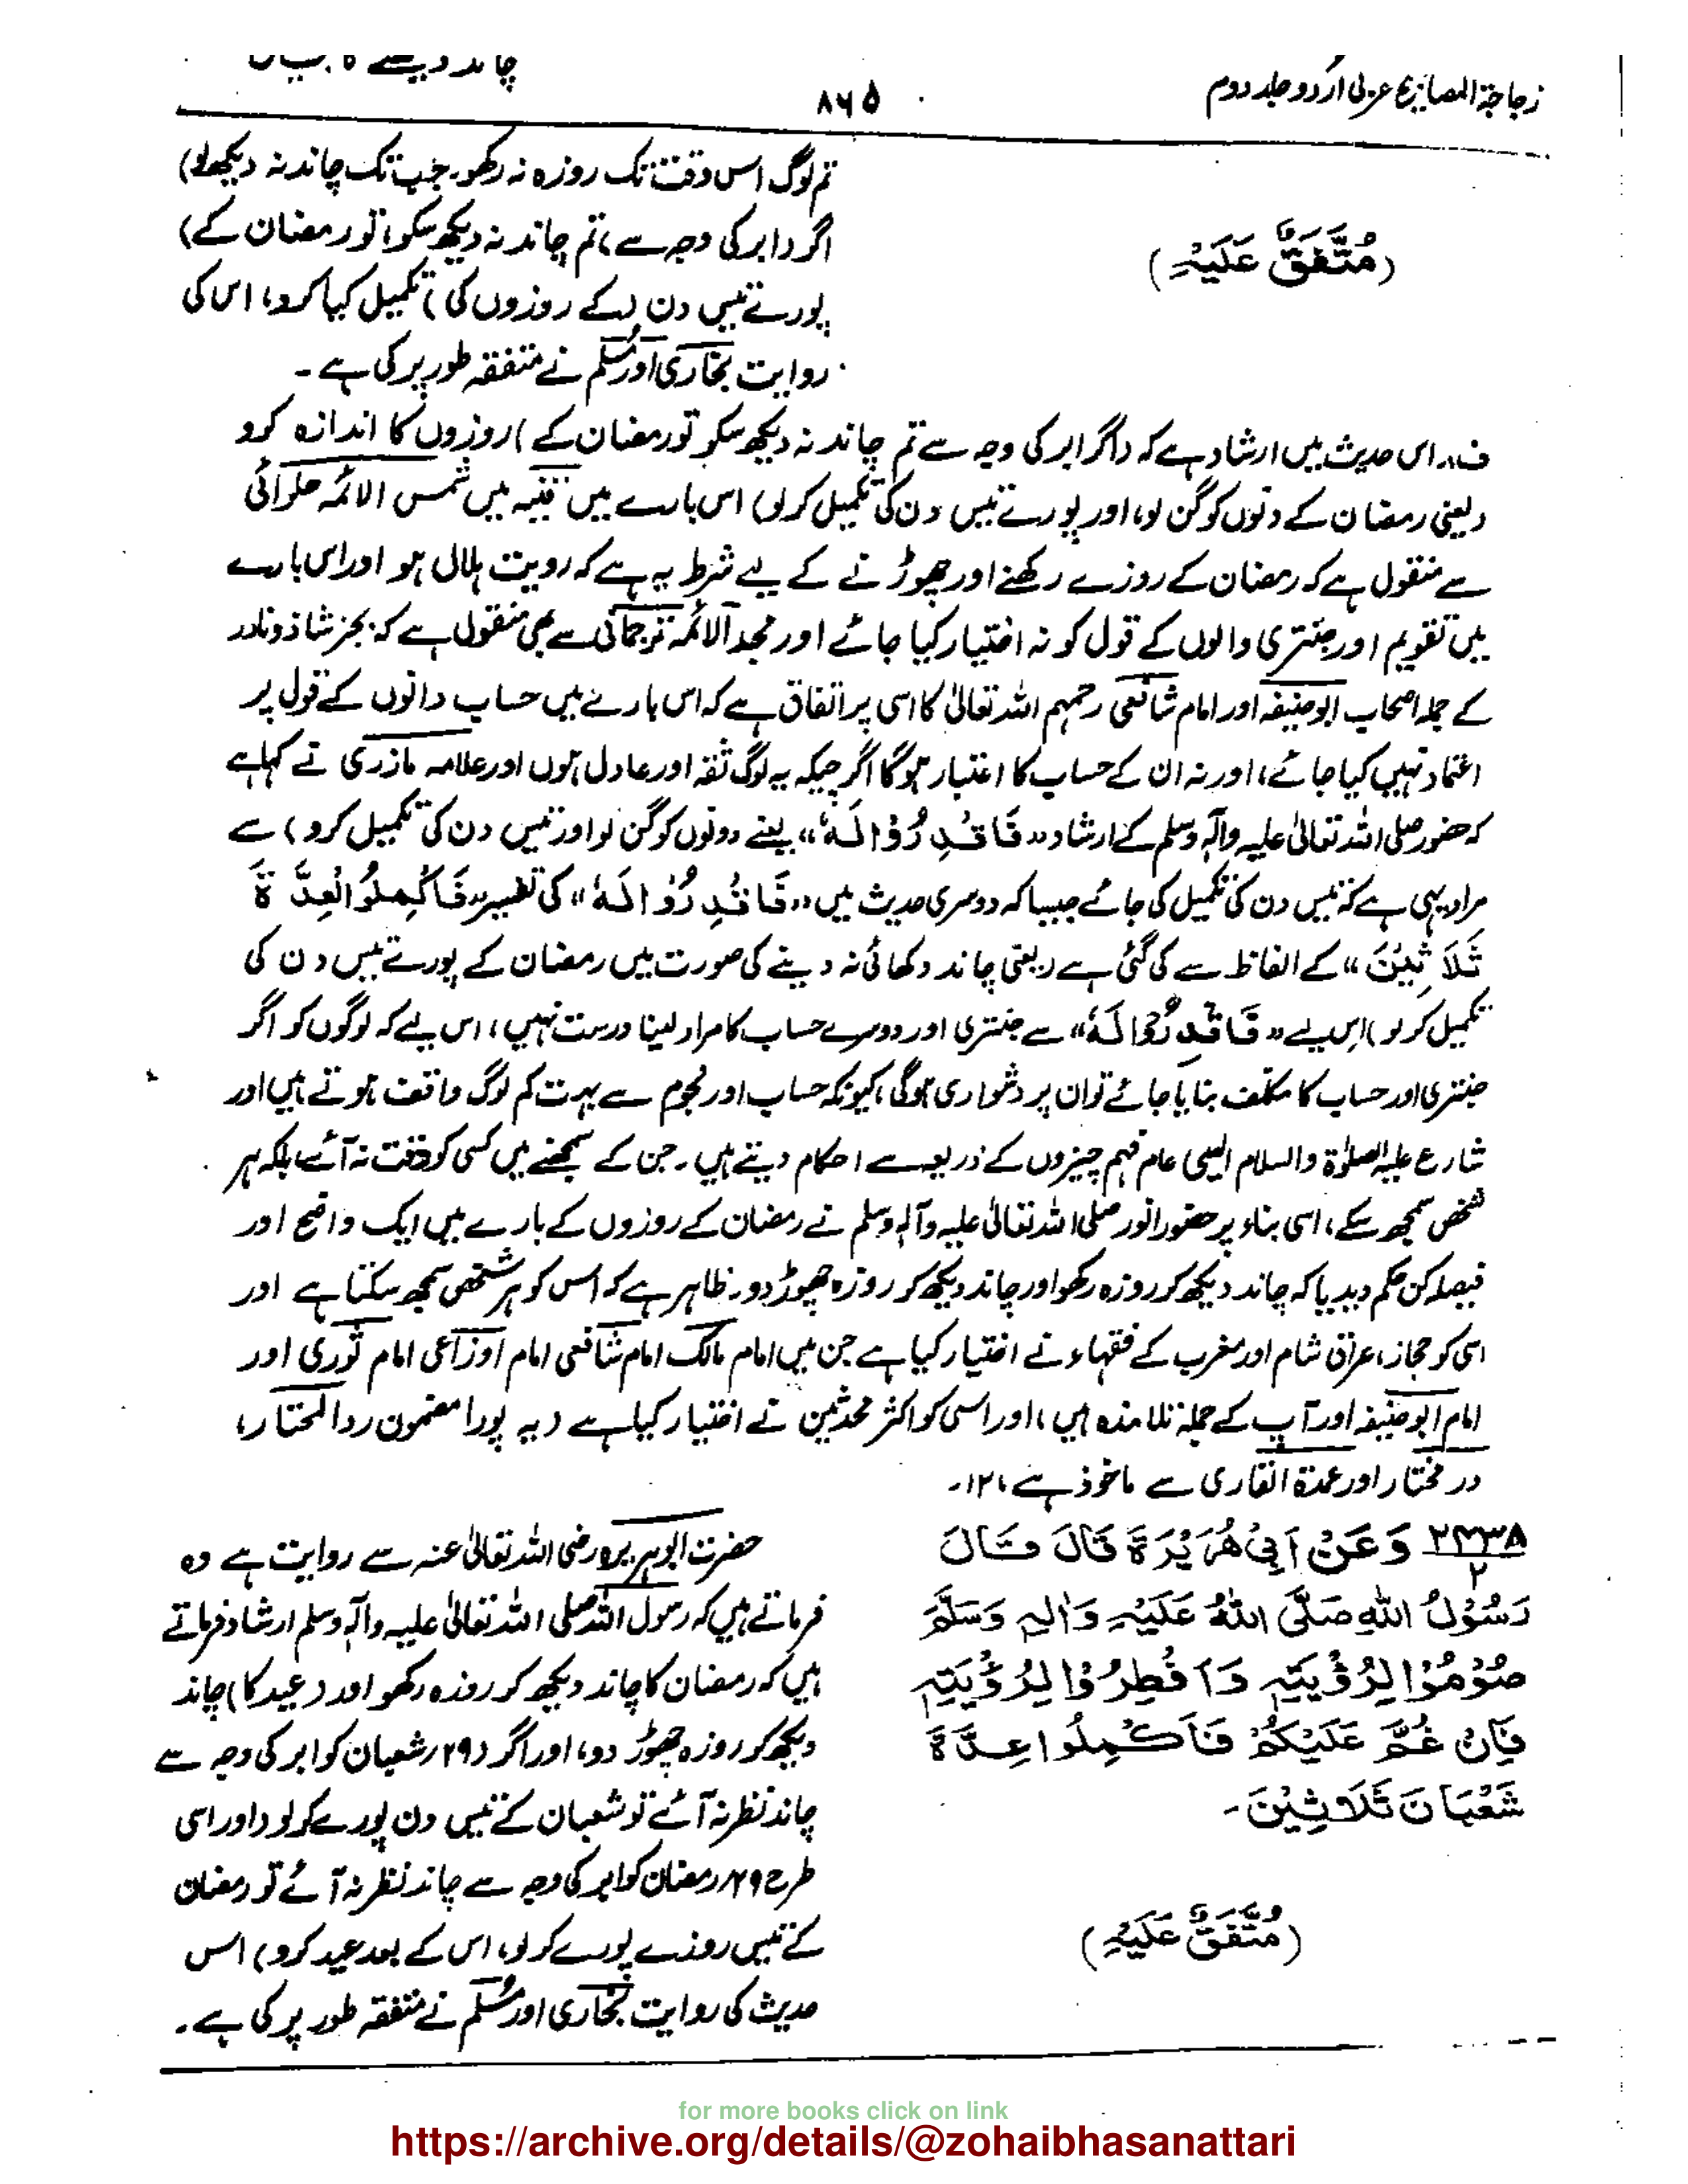 زجاجۃ المصابیح عربی اُردو جلد دوم
۸۶۵
چاند دیکھنے کا بیان
(مُتَّفَقٌ عَلَیْہِ)
تم لوگ اس وقت تک روزہ نہ رکھو جب تک چاند نہ دیکھ لو)
اگر (ابر کی وجہ سے) تم چاند نہ دیکھ سکو، تو رمضان کے)
پورے تیس دن (کے روزوں کی) تکمیل کیا کرو، اس کی
روایت بخاری اور مسلم نے متفقہ طور پر کی ہے ۔
ف:۔ اس حدیث میں ارشاد ہے کہ (اگر ابر کی وجہ سے تم چاند نہ دیکھ سکو تو رمضان کے) روزوں کا اندازہ کرو
(یعنی رمضان کے دنوں کو گن لو، اور پورے تیس دن کی تکمیل کر لو) اس بارے میں قنیہ میں شمس الائمہ حلوائی
سے منقول ہے کہ رمضان کے روزے رکھنے اور چھوڑنے کے لیے شرط یہ ہے کہ رویت ہلال ہو اور اس بارے
میں تقویم اور جنتری والوں کے قول کو نہ اختیار کیا جائے اور مجد الائمہ ترجمانی سے بھی منقول ہے کہ بجز شاذ و نادر
کے جملہ اصحاب ابو حنیفہ اور امام شافعی رحمہم اللہ تعالیٰ کا اسی پر اتفاق ہے کہ اس بارے میں حساب دانوں کے قول پر
اعتماد نہیں کیا جائے، اور نہ ان کے حساب کا اعتبار ہوگا اگرچیکہ یہ لوگ ثقہ اور عادل ہوں اور علامہ مازری نے کہا ہے
کہ حضور صلی اللہ تعالیٰ علیہ وآلہٖ وسلم کے ارشاد «فَاقْدِرُوْا لَہٗ» یعنے دونوں کو گن لو اور تیس دن کی تکمیل کرو) سے
مراد یہی ہے کہ تیس دن کی تکمیل کی جائے جیسا کہ دوسری حدیث میں «فَاقْدِرُوْا لَہٗ» کی تفسیر «فَاَکْمِلُوا الْعِدَّۃَ
ثَلَاثِیْنَ» کے الفاظ سے کی گئی ہے (یعنی چاند دکھائی نہ دینے کی صورت میں رمضان کے پورے تیس دن کی
تکمیل کر لو) اس لیے «فَاقْدِرُوْا لَہٗ» سے جنتری اور دوسرے حساب کا مراد لینا درست نہیں، اس لیے کہ لوگوں کو اگر
جنتری اور حساب کا مکلف بنایا جائے تو ان پر دشواری ہوگی، کیونکہ حساب اور نجوم سے بہت کم لوگ واقف ہوتے ہیں اور
شارع علیہ الصلوٰۃ والسلام ایسی عام فہم چیزوں کے ذریعہ سے احکام دیتے ہیں ۔ جن کے سمجھنے میں کسی کو دقت نہ آئے بلکہ ہر
شخص سمجھ سکے، اسی بناء پر حضور انور صلی اللہ تعالیٰ علیہ وآلہٖ وسلم نے رمضان کے روزوں کے بارے میں ایک واضح اور
فیصلہ کن حکم دیدیا کہ چاند دیکھ کر روزہ رکھو اور چاند دیکھ کر روزہ چھوڑ دو ۔ ظاہر ہے کہ اس کو ہر شخص سمجھ سکتا ہے اور
اسی کو حجاز، عراق شام اور مغرب کے فقہاء نے اختیار کیا ہے جن میں امام مالک امام شافعی امام اوزاعی امام ثوری اور
امام ابو حنیفہ اور آپ کے جملہ تلامذہ ہیں، اور اسی کو اکثر محدثین نے اختیار کیا ہے (یہ پورا مضمون ردالمحتار،
در مختار اور عمدۃ القاری سے ماخوذ ہے) ۱۲ ۔
۲۴۳۸/۲ وَعَنْ اَبِیْ ھُرَیْرَۃَ قَالَ قَالَ
رَسُوْلُ اللّٰہِ صَلَّی اللّٰہُ عَلَیْہِ وَاٰلِہٖ وَسَلَّمَ
صُوْمُوْا لِرُؤْیَتِہٖ وَاَفْطِرُوْا لِرُؤْیَتِہٖ
فَاِنْ غُمَّ عَلَیْکُمْ فَاَکْمِلُوا عِدَّۃَ
شَعْبَانَ ثَلَاثِیْنَ ۔
(مُتَّفَقٌ عَلَیْہِ)
حضرت ابو ہریرہ رضی اللہ تعالیٰ عنہ سے روایت ہے وہ
فرماتے ہیں کہ رسول اللہ صلی اللہ تعالیٰ علیہ وآلہٖ وسلم ارشاد فرماتے
ہیں کہ رمضان کا چاند دیکھ کر روزہ رکھو اور (عید کا) چاند
دیکھ کر روزہ چھوڑ دو، اور اگر (۲۹؍ شعبان کو ابر کی وجہ سے
چاند نظر نہ آئے تو شعبان کے تیس دن پورے کر لو (اور اسی
طرح ۲۹؍ رمضان کو ابر کی وجہ سے چاند نظر نہ آئے تو رمضان
کے تیس روزے پورے کر لو، اس کے بعد عید کرو) اس
حدیث کی روایت بخاری اور مسلم نے متفقہ طور پر کی ہے ۔
for more books click on link
https://archive.org/details/@zohaibhasanattari